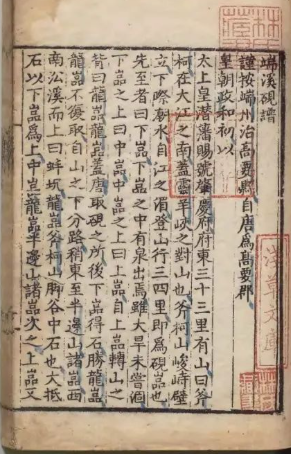 端溪硯譜
謹按端州治高要縣自唐爲高要郡
皇朝政和初以
太上皇潛藩賜號肇慶府府東三十三里有山曰斧
柯在大江之南蓋靈羊峽之對山也斧柯山峻峙壁
立下際潮水自江之湄登山行三四里即爲硯嵓也
先至者曰下嵓下嵓之中有泉出焉雖大旱未嘗涸
下嵓之上曰中嵓中嵓之上曰上嵓自上嵓轉山之
背曰龍嵓龍嵓蓋唐取硯之所後下嵓得石勝龍嵓
龍嵓不復取自山之下分路稍東至半邊山諸嵓西
南沿溪而上曰蚌坑龍嵓斧柯山脚谷中石也大抵
石以下嵓爲上中嵓龍嵓半邊山諸嵓次之上嵓又
淺草文庫